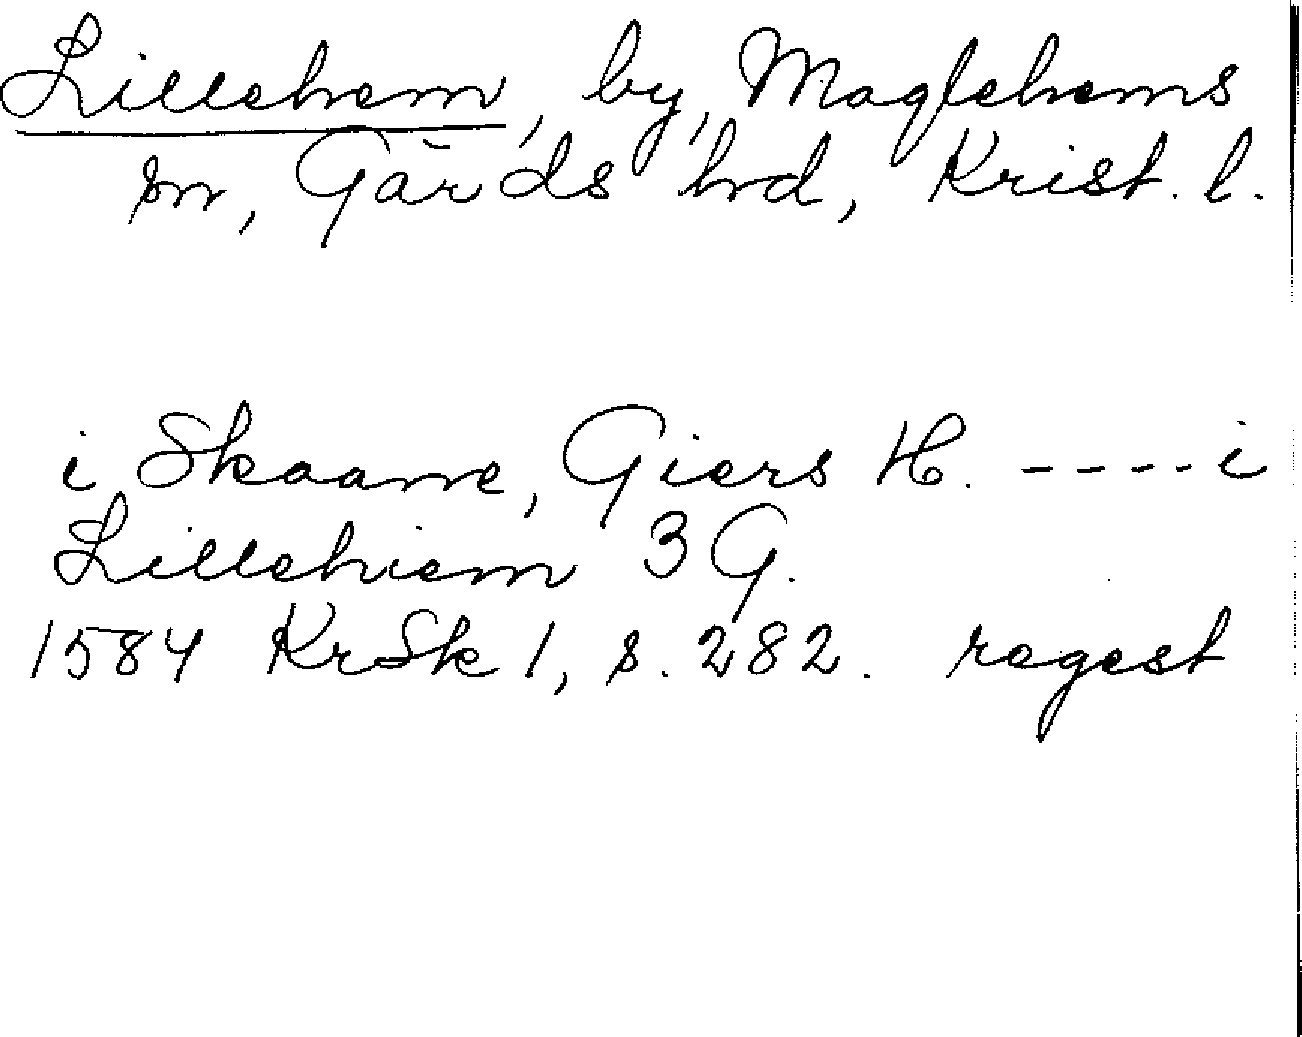 Lillehem, by, Maglehems
sn, Gärds hrd, Krist. l.
i Skaane, Giers H. ---- i
Lillehiem 3 G.
1584 KrSk 1, s. 282. regest